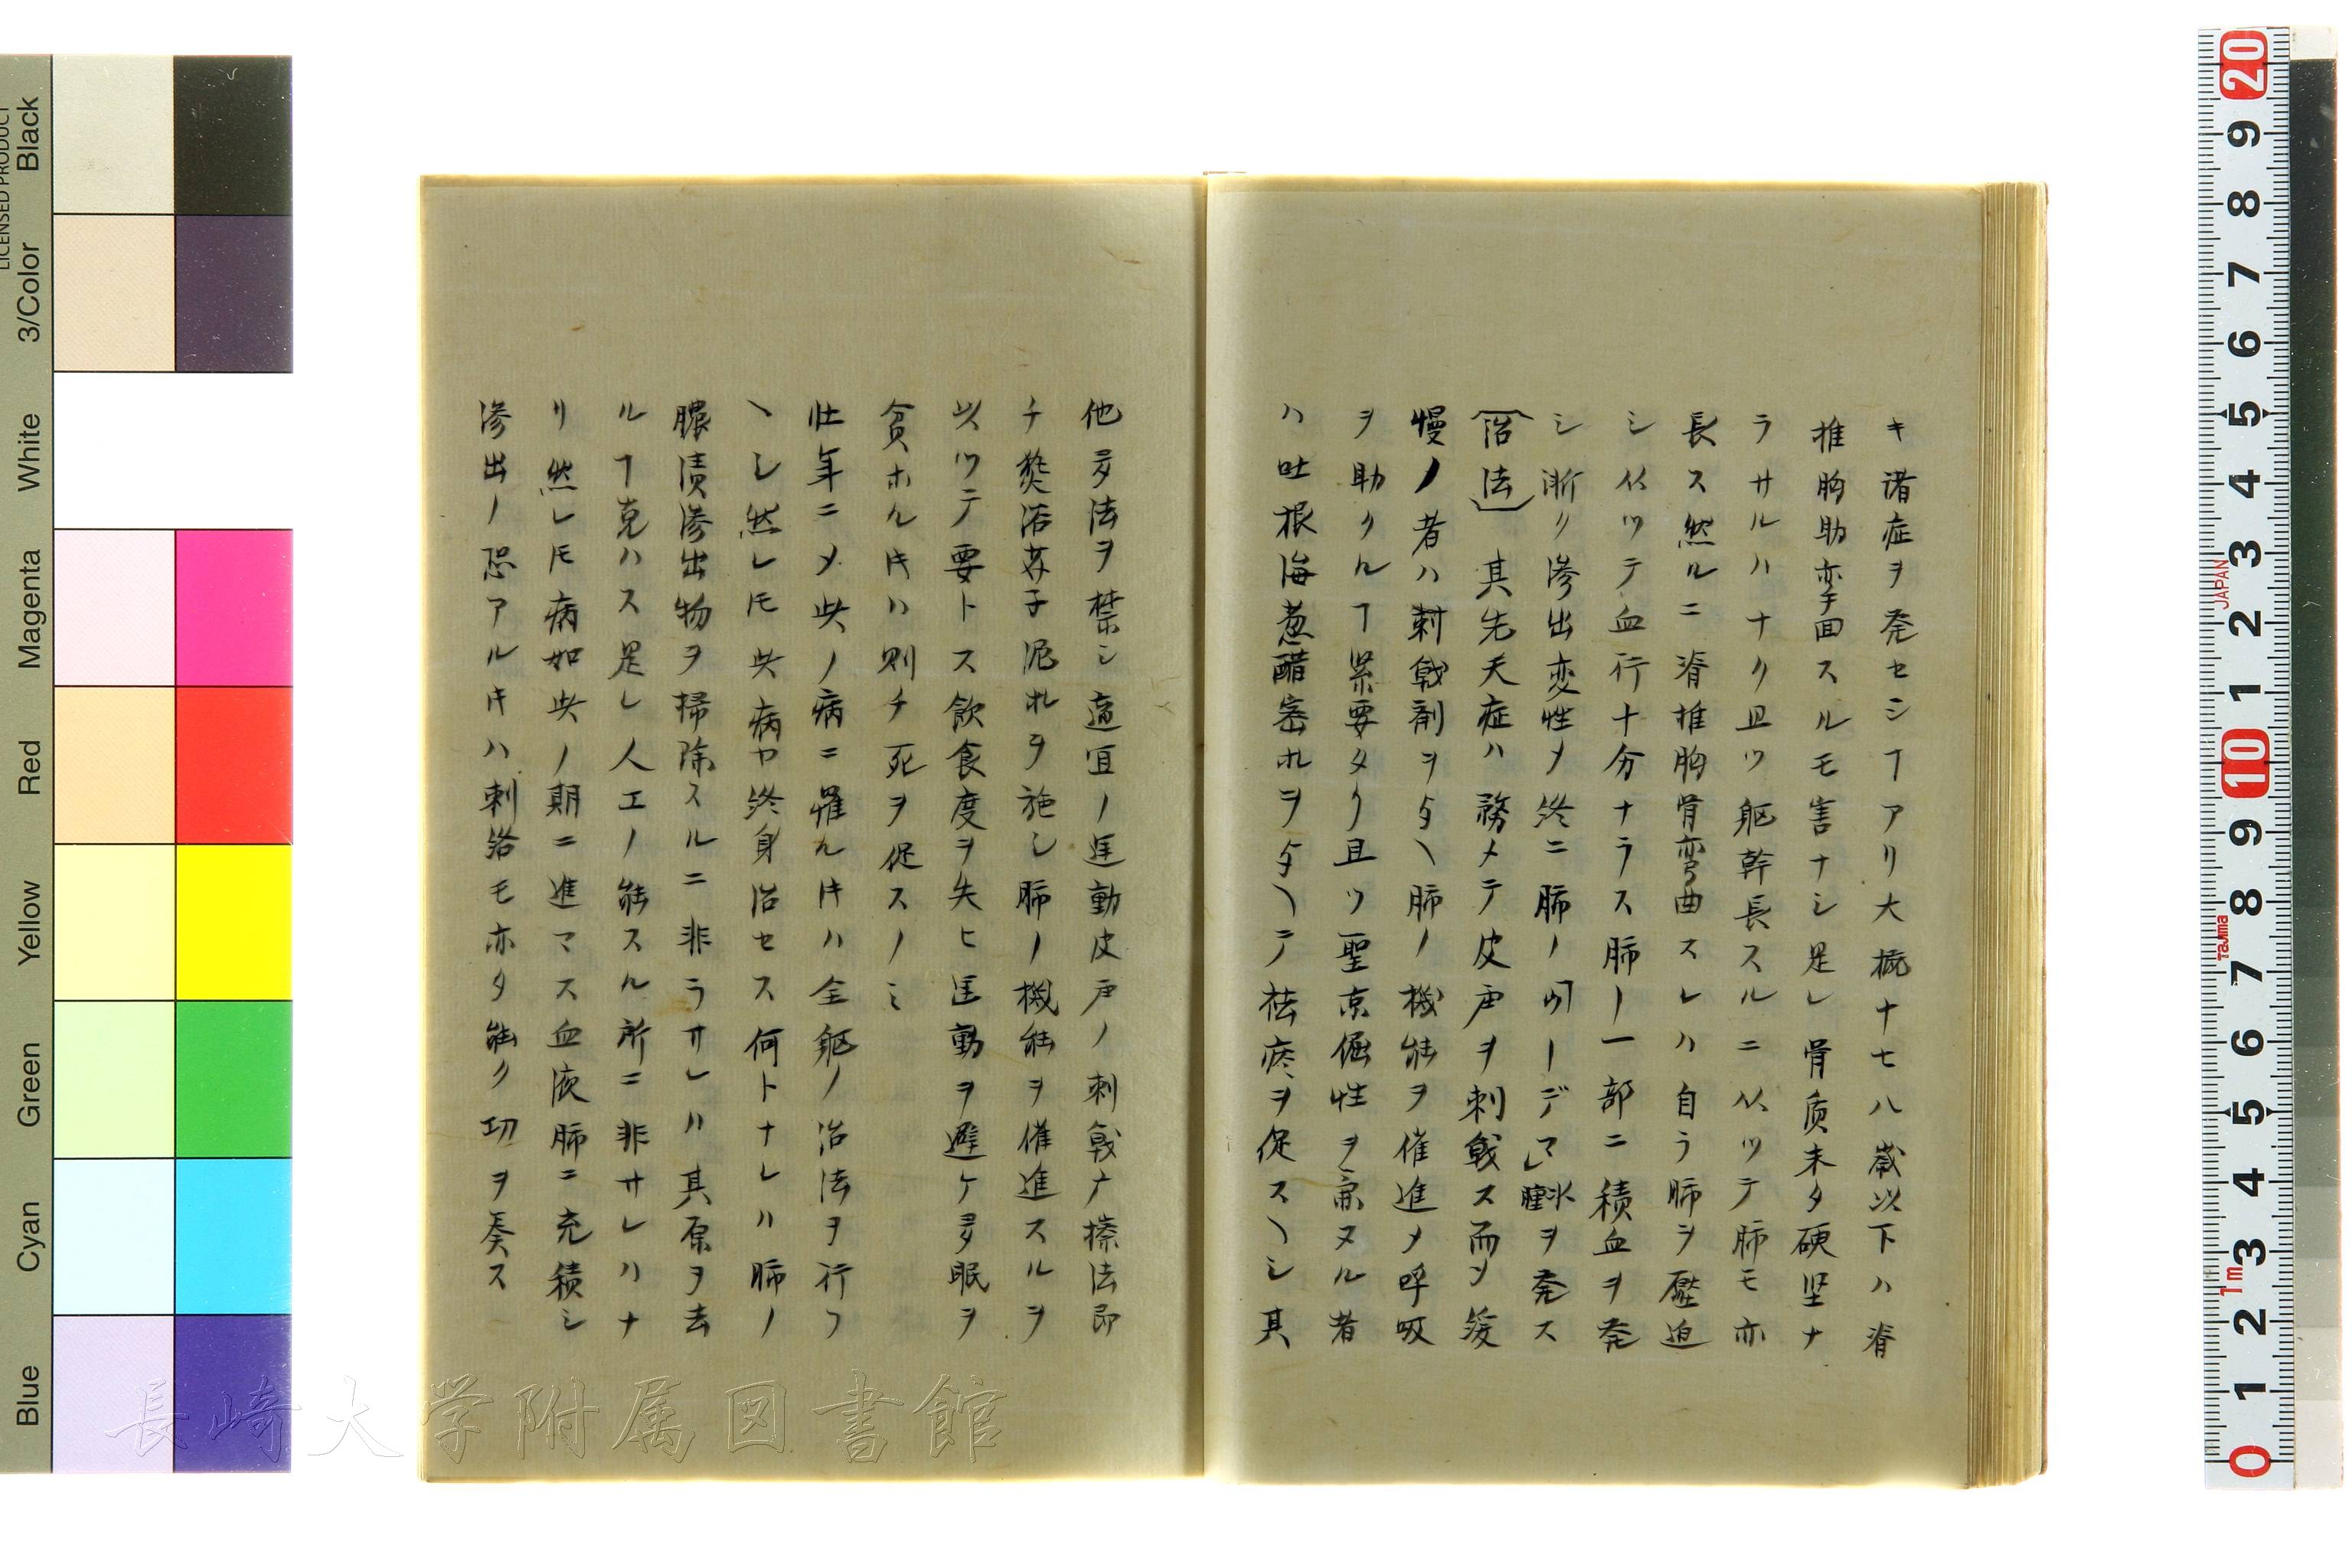 キ諸症ヲ発セシヿアリ大概十七八歳以下ハ脊
推胸肋弯曲スルモ害ナシ是レ骨质未タ硬坚ナ
ラサルハナク且ツ躯幹長スルニ从ッテ肺モ亦
長ス然ルニ脊推胸骨弯曲スレハ自ラ肺ヲ壓迫
シ从ッテ血行十分ナラス肺ノ一部ニ積血ヲ発
シ漸ク滲出変性〆終ニ肺ノ ーデマ 水腫ヲ発ス
(治法) 其先天症ハ務メテ皮膚ヲ刺戟ス而〆緩
慢ノ者ハ刺戟剤ヲ与ヘ肺ノ機能ヲ催進〆呼吸
ヲ助クルヿ緊要タリ且ツ聖京倔性ヲ兼ヌル者
ハ吐根海葱醋蜜ホヲ与ヘテ袪痰ヲ促スヘシ其
他多法ヲ禁シ適宜ノ運動皮膚ノ刺戟ナ擦法即
チ焚浴芥子泥ホヲ施シ肺ノ機能ヲ催進スルヲ
以ッテ要トス飲食度ヲ失ヒ運動ヲ避ケ多眠ヲ
貪ホル片ハ則チ死ヲ促スノミ
壮年ニ〆此ノ病ニ罹ル片ハ全躯ノ治法ヲ行フ
ヘシ然レ𪜈此病ヤ終身治セス何トナレハ肺ノ
膿漬滲出物ヲ掃除スルニ非ラサレハ其原ヲ去
ルヿ克ハス是レ人工ノ能スル所ニ非サレハナ
リ然レ𪜈病如此ノ期ニ進マス血液肺ニ充積シ
滲出ノ恐アル片ハ刺絡モ亦タ能ク功ヲ奏ス
Black
3/Color
White
Magenta
Red
Yellow
Green
Cyan
Blue
LICENSED PRODUCT
20
9
8
7
6
5
4
3
2
1
10
9
8
7
6
5
4
3
2
1
0
JAPAN
Tajima
1m
長崎大学附属図書館